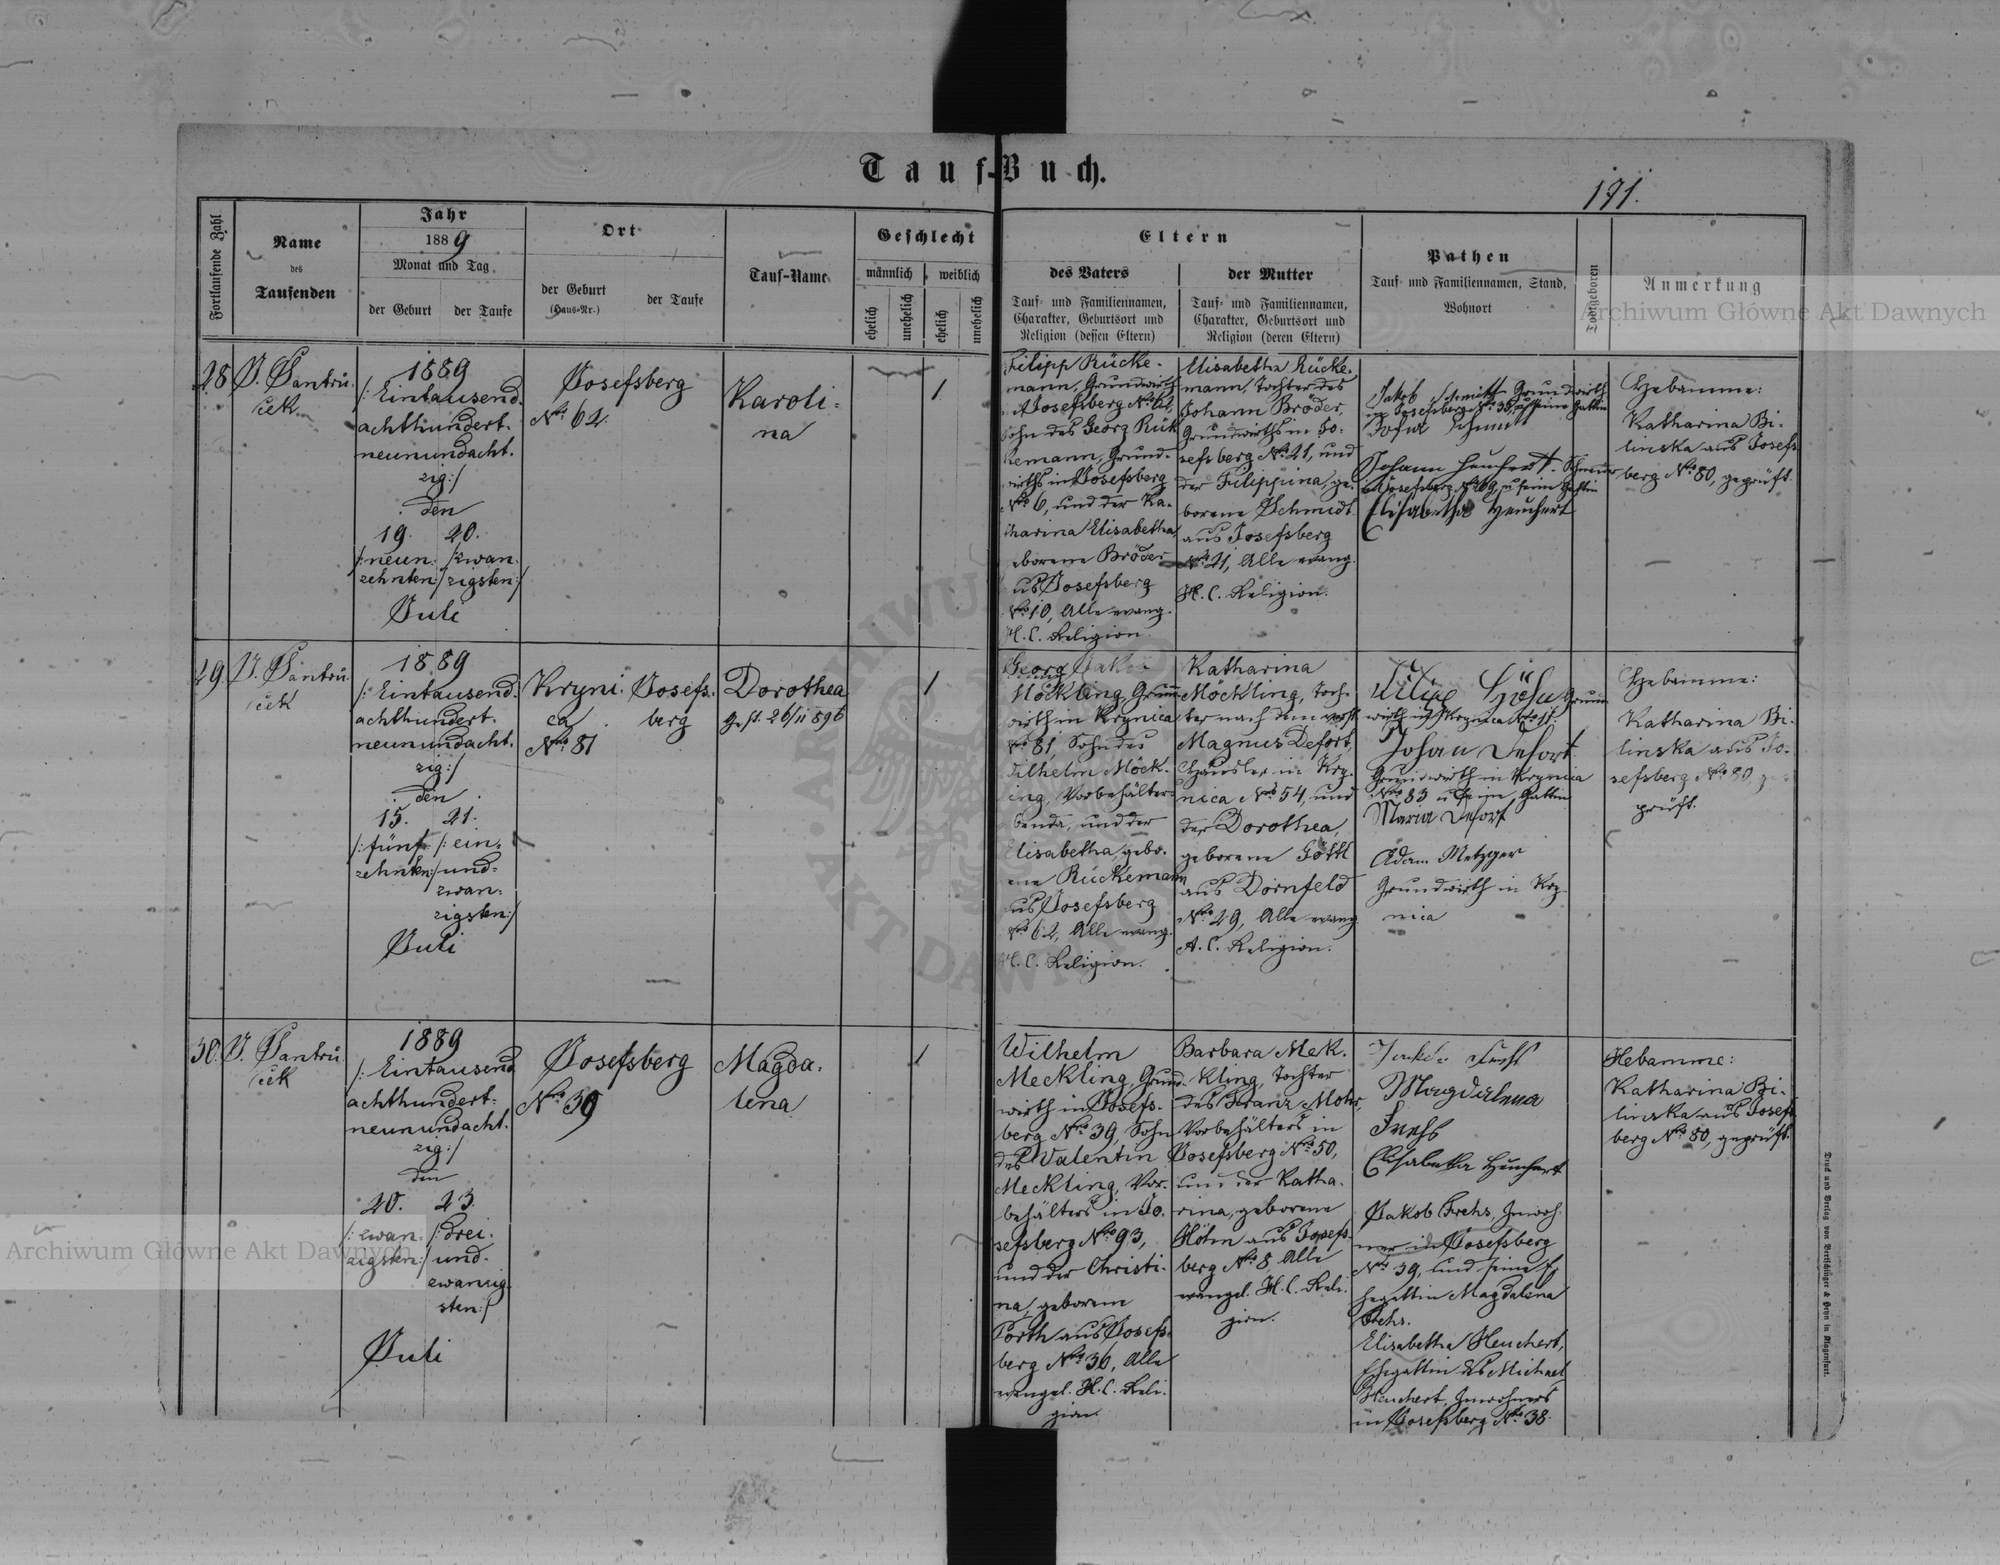 Tauf-Buch.
191.
Fortlaufende Zahl
Name
des
Taufenden
Jahr
1889
Monat und Tag
der Geburt
der Taufe
Ort
der Geburt
(Haus-Nr.)
der Taufe
Tauf-Name
Geschlecht
männlich
weiblich
ehelich
unehelich
ehelich
unehelich
Eltern
des Vaters
Tauf- und Familiennamen,
Charakter, Geburtsort und
Religion (dessen Eltern)
der Mutter
Tauf- und Familiennamen,
Charakter, Geburtsort und
Religion (deren Eltern)
Pathen
Tauf- und Familiennamen, Stand,
Wohnort
Todtgeboren
Anmerkung
28
J. Jantru-
ček
1889
/: Eintausend-
achthundert-
neunundacht-
zig :/
den
19. 20.
/: neun- /: zwan-
zehnten :/ zigsten :/
Juli
Josefsberg
Nro 62.
Karoli-
na
1
Filipp Rücke-
mann, Grundwirth
Josefsberg Nro 62,
Sohn des Georg Rük
kemann, Grund-
wirths in Josefsberg
Nro 6, und der Ka-
tharina Elisabetha,
geborene Bröder
aus Josefsberg
Nro 10, Alle evang.
H. C. Religion.
Elisabetha Rücke-
mann, Tochter des
Johann Bröder,
Grundwirths in Jo-
sefsberg Nro 21, und
der Filippina, ge-
borene Schmidt
aus Josefsberg
Nro 21, Alle evang.
H. C. Religion.
Jakob Schmith Grundwirth
in Josefsberg Nro 36, u seine Gattin
Sofia Schmitt
Johann Heuchert
in Josefsberg Nro 69, u seine Gattin
Elisabetha Heuchert
Hebamme:
Katharina Bi-
linska aus Josefs-
berg Nro 80, geprüft.
29.
J. Jantru-
ček
1889
/: Eintausend-
achthundert-
neunundacht-
zig :/
den
15. 21.
/: fünf- /: ein-
zehnten :/ und-
zwan-
zigsten :/
Juli
Kryni-
ca
Nro 81
Josefs-
berg
Dorothea
Gest. 26/II 896
1
Georg Jakob
Möckling, Grund-
wirth in Krynica
Nro 81, Sohn des
Wilhelm Möck-
ling, Vorbehälters
benda, und der
Elisabetha, gebo-
rene Rückemann
aus Josefsberg
Nro 62, Alle evang.
H. C. Religion.
Katharina
Möckling, Toch-
ter nach dem verst.
Magnus Defort,
Häusler in Kry-
nica Nro 54, und
der Dorothea,
geborene Göttl
aus Dornfeld
Nro 29, Alle evang
A. C. Religion.
Filipp Höhn Grund
wirth in Krynica
Johan Defort
Grundwirth in Krynica
Nro 83 u seine Gattin
Maria Defort
Adam Metzger
Grundwirth in Kry-
nica
Hebamme:
Katharina Bi-
linska aus Jo-
sefsberg Nro 80, ge-
prüft.
30.
J. Jantru-
ček
1889
/: Eintausend
achthundert-
neunundacht-
zig :/
den
20. 23.
/: zwan- /: drei-
zigsten :/ und-
zwanzig-
sten :/
Juli
Josefsberg
Nro 39
Magda-
lena
1
Wilhelm
Meckling, Grund-
wirth in Josefs-
berg Nro 39, Sohn
des Valentin
Meckling, Vor-
behälters in Jo-
sefsberg Nro 93,
und der Christi-
na, geborene
Porth aus Josefs-
berg Nro 36, Alle
evangel. H. C. Reli-
gion.
Barbara Mek-
kling, Tochter
des Franz Mohr,
Vorbehälters in
Josefsberg Nro 50,
und der Katha-
rina, geborene
Höhn aus Josefs-
berg Nro 8, Alle
evangel. H. C. Reli-
gion.
Magdalena
Elisabetha Heuchert
Jakob Frehs, Inwoh-
ner in Josefsberg
Nro 39, und seine E-
hegattin Magdalena
Frehs.
Elisabetha Heuchert,
Ehegattin des Michael
Heuchert, Inwohners
in Josefsberg Nro 38.
Hebamme:
Katharina Bi-
linska aus Josefs-
berg Nro 80, geprüft.
Druck und Verlag von Bertschinger & Heyn in Klagenfurt.
Archiwum Główne Akt Dawnych
Archiwum Główne Akt Dawnych